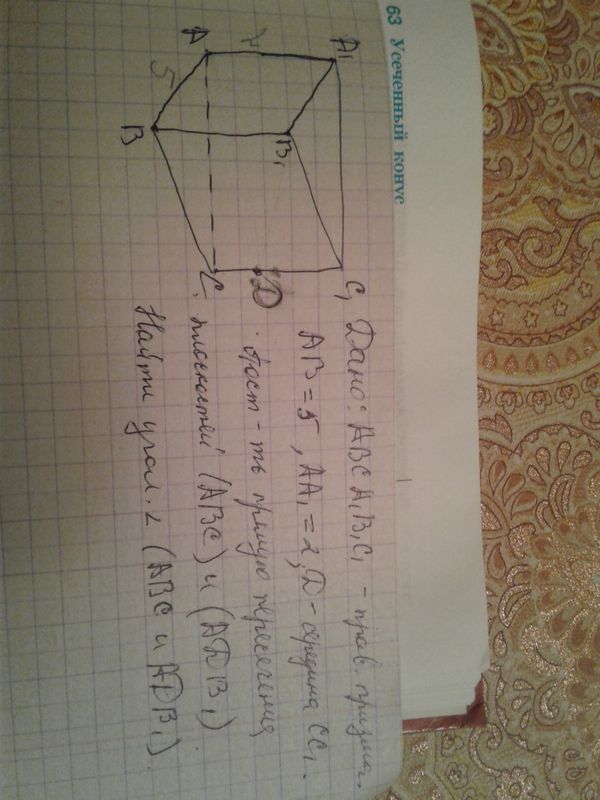 63 Усеченный конус
A
2
A₁
5
B
B₁
C
D
C₁
Дано: ABCA₁B₁C₁ – прав. призма,
AB = 5, AA₁ = 2, D – середина CC₁.
Пост-ть прямую пересечения
плоскостей (ABC) и (ADB₁)
Найти угол ∠ (ABC и ADB₁).